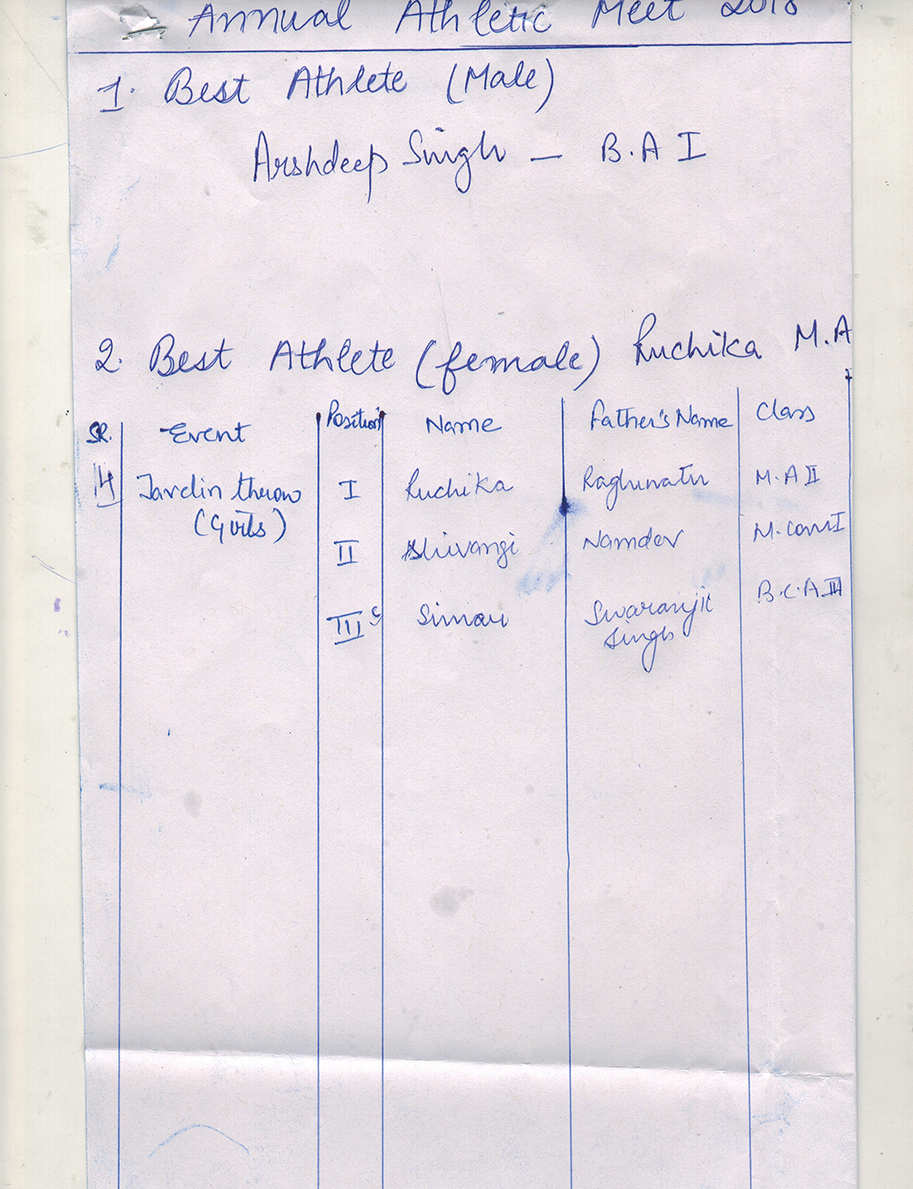 Annual Athletic Meet 2018
1. Best Athlete (Male)
Arshdeep Singh — B.A I
2. Best Athlete (female) Ruchika M.A
SR. Event Position Name Father's Name Class
14 Javelin throw I Ruchika Raghunath M.A II
(Girls)
II Shivangi Namdev M.Com I
III Simran Swaranjit B.C.A III
Singh